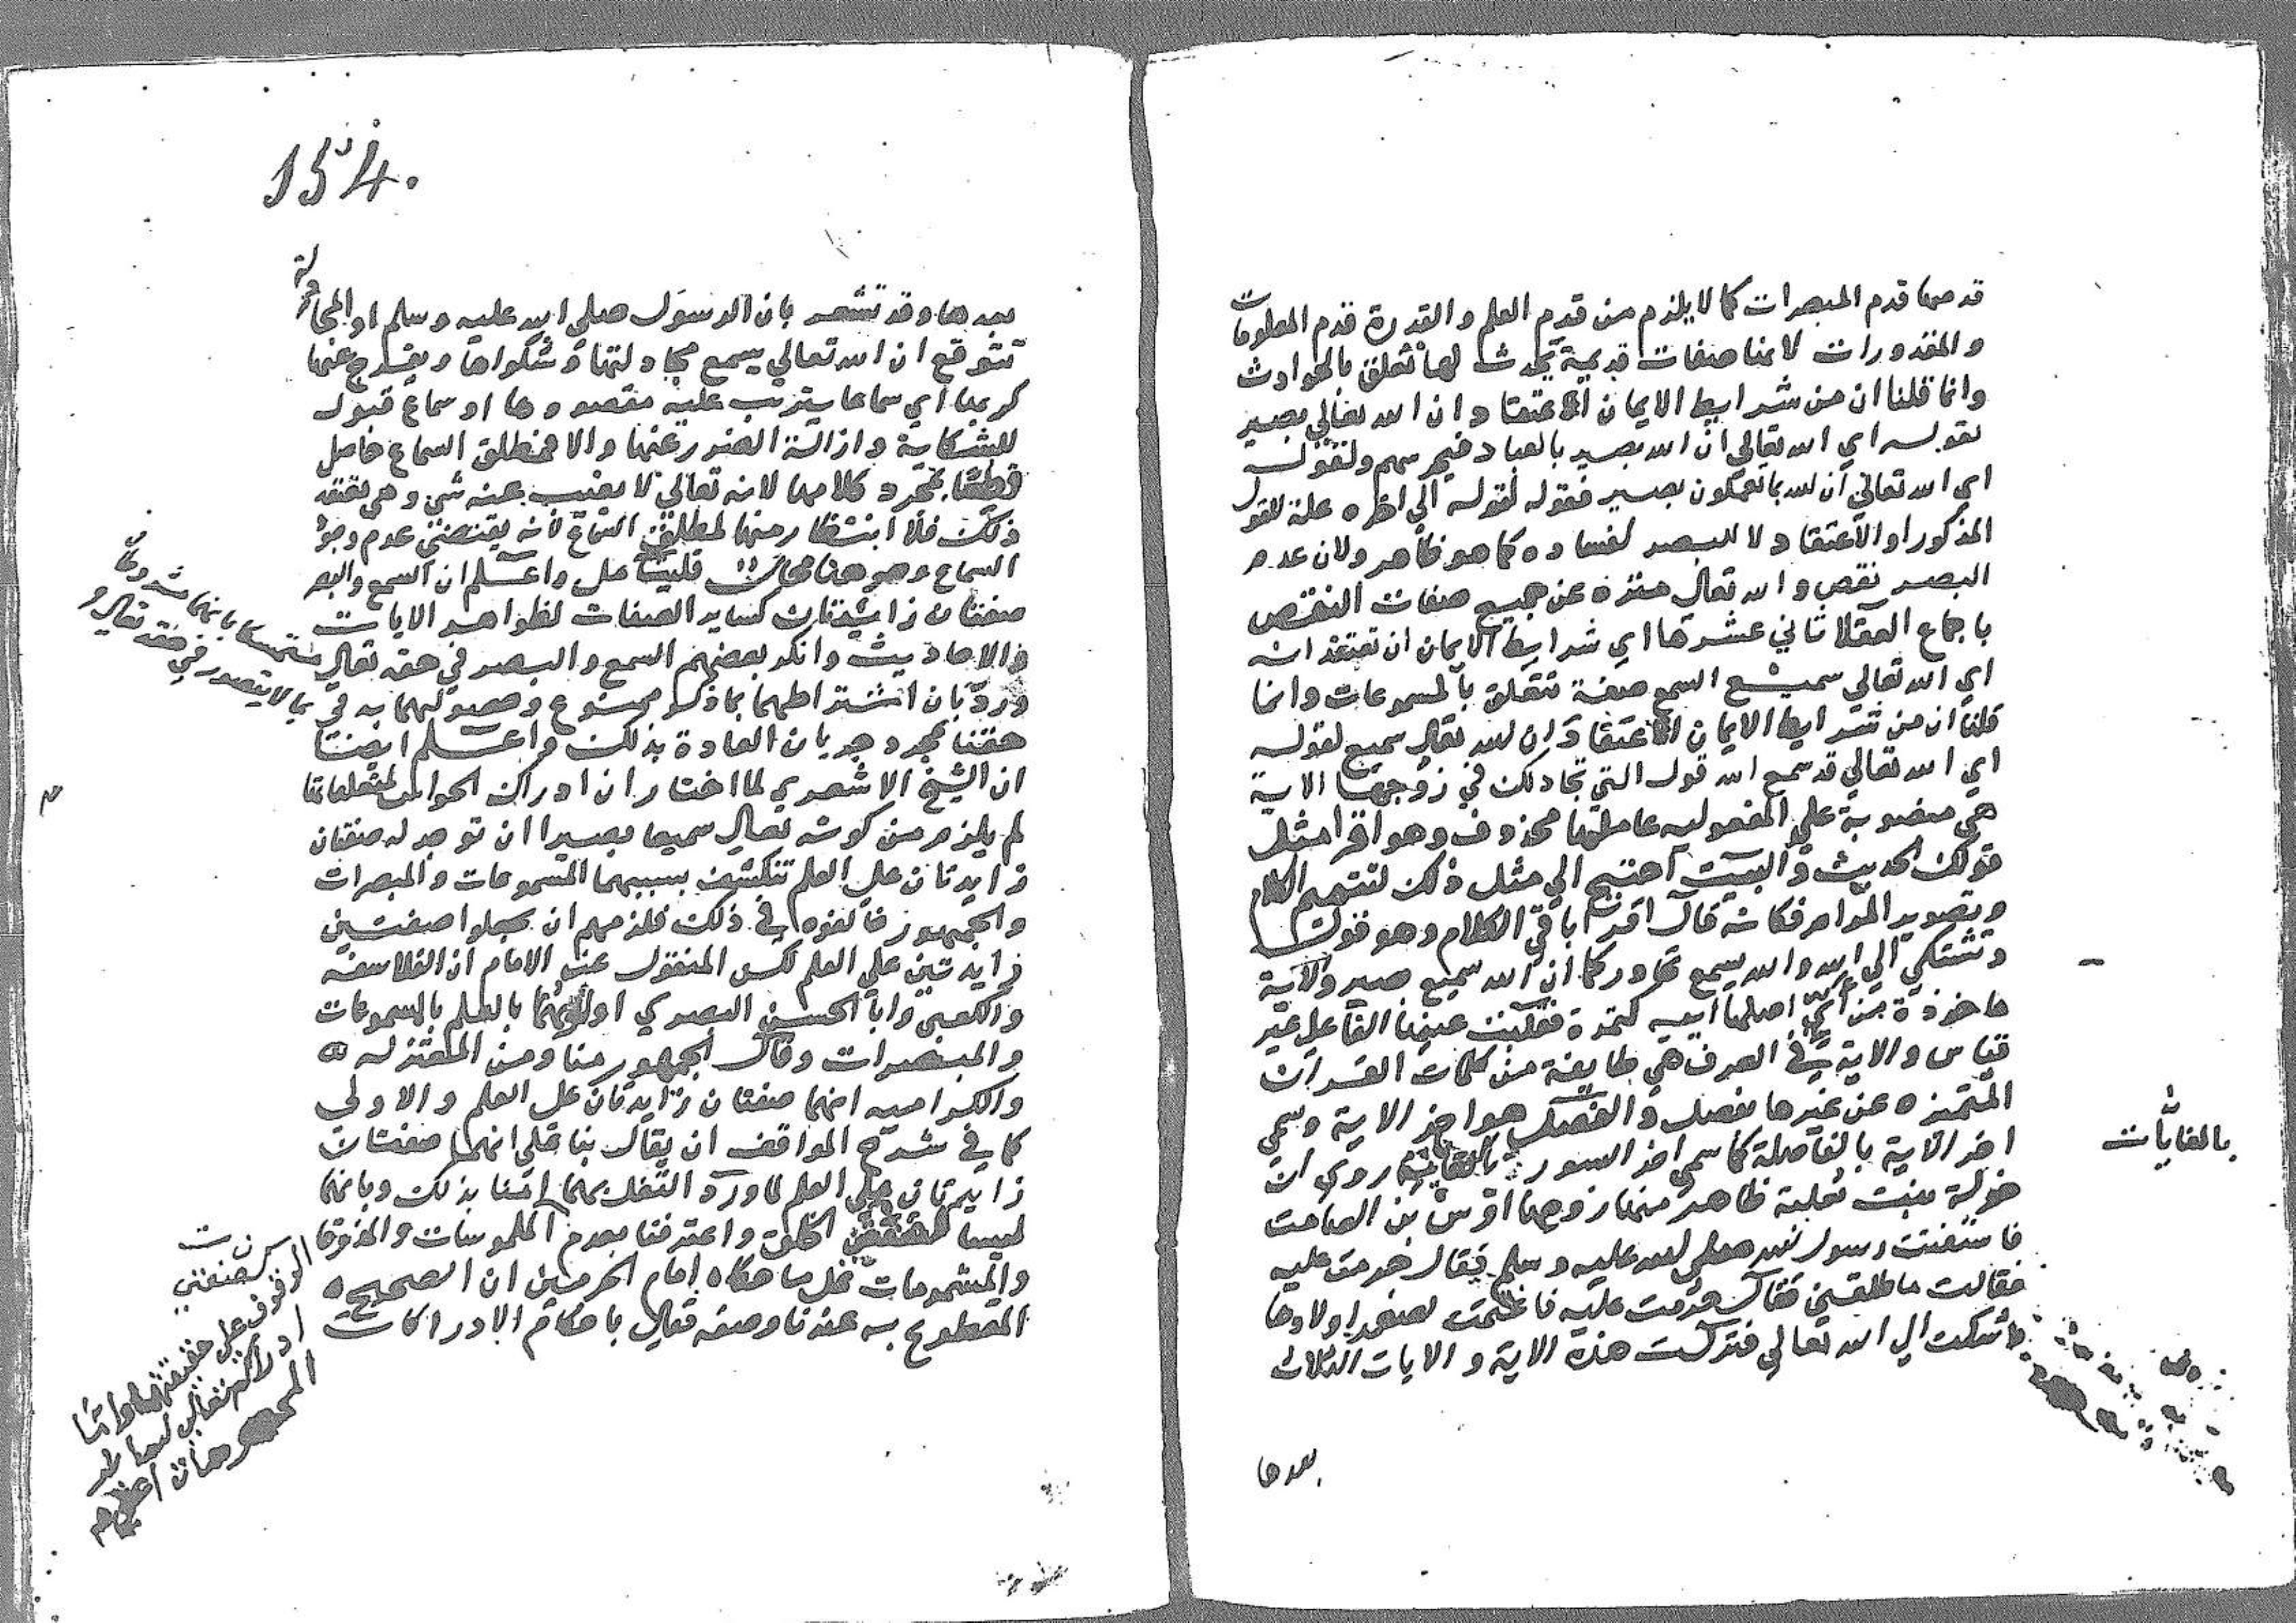 قدمهما قدم المبصرات كما لا يلزم من قدم العلم والقدرة قدم المعلومات
والمقدورات لانها صفات قديمة يحدث لها تعلق بالحوادث
وانما قلنا ان من شرايط الايمان الاعتقاد ان الله تعالي بصير
لقوله اي الله تعالي ان الله بصير بالعباد ولقوله
اي الله تعالي ان الله بما تعملون بصير فقوله لقوله الي اخره علة للقول
المذكور او الاعتقاد لا للبصر لفساده كما هو ظاهر ولان عدم
البصر نقص والله تعالي منزه عن جميع صفات النقص
باجماع العقلا ثاني عشرها اي شرايط الايمان ان تعتقد انه
اي الله تعالي سميع السمع صفة تتعلق بالمسموعات وانما
قلنا ان من شرايط الايمان الاعتقاد ان الله تعالي سميع لقوله
اي الله تعالي قد سمع الله قول التي تجادلك في زوجها الاية
هي منصوبة علي المفعوليه عاملها محذوف وهو اقرا مثل
قولك الحديث والبيت احتيج الي مثل ذلك لتتميم الكلام
وتصوير المرام فكانه قال اقرا باقي الكلام وهو قوله
وتشتكي الي الله والله يسمع تحاوركما ان الله سميع بصير والاية
ماخوذة من أي اصلها اييه كتمرة فقلبت عينها الفا علي غير
قياس والاية في العرف هي طايفة من كلمات القران
المتميزه عن غيرها بفصل والفصل هو اخر الاية وسمي
اخر الاية بالفاصلة كما سمي اخر السور روي ان
بالغايات
خولة بنت ثعلبة ظاهر منها زوجها اوس بن الصامت
فاستفتت رسول الله صلي الله عليه وسلم فقال حرمت عليه
فقالت ما طلقني فقال حرمت عليه فاغتمت لصغر اولادها
فاشتكت الي الله تعالي فنزلت هذه الاية والايات الثلاث
بعدها
154.
بعدها وقد تشعر بان الرسول صلي الله عليه وسلم او المجادلة
تتوقع ان الله تعالي يسمع مجادلتها وشكواها ويفرج عنها
كربها اي سماعا يترتب عليه مقصودها او سماع قبول
للشكاية وازالة الضرر عنها والا فمطلق السماع حاصل
قطعا بمجرد كلامها لانه تعالي لا يغيب عنه شي وهي تعتقد
ذلك فلا انتظار منها لمطلق السماع لانه يقتضي عدم وجود
السماع وهو هنا محال واعلم ان السمع والبصر
صفتان زائدتان كساير الصفات لظواهر الايات
والاحاديث وانكر بعضهم السمع والبصر في حقه تعالي
متمسكا بانهما مشروطان
بما لا يتصور في حقه تعالي
ورد بان اشتراطهما بما ذكر ممنوع وحصولهما به في
حقنا بمجرد جريان العادة بذلك واعلم ايضا
ان الشيخ الاشعري لما اختار ان ادراك الحواس لمتعلقاتها
لم يلزم من كونه تعالي سميعا بصيرا ان توجد له صفتان
زايدتان علي العلم تنكشف بسببهما المسموعات والمبصرات
والجمهور خالفوه في ذلك فلزمهم ان يجعلوا صفتين
زايدتين علي العلم لكن المنقول عن الامام ان الفلاسفة
والكعبي وابا الحسين البصري اولوهما بالعلم بالمسموعات
والمبصرات وقال الجمهور منا ومن المعتزله
والكراميه انهما صفتان زايدتان علي العلم والاولي
كما في شرح المواقف ان يقال بناء علي انهما صفتان
زايدتان علي العلم لما ورد النقل بهما امنا بذلك وبانهما
ليسا واعترفنا بعدم
الوقوف علي حقيقتهما واما
ادراكه تعالي
الملموسات والمذوقات
والمشمومات فعلي ما حكاه امام الحرمين ان الصحيح
المقطوع به عندنا وصفه تعالي باحكام الادراكات